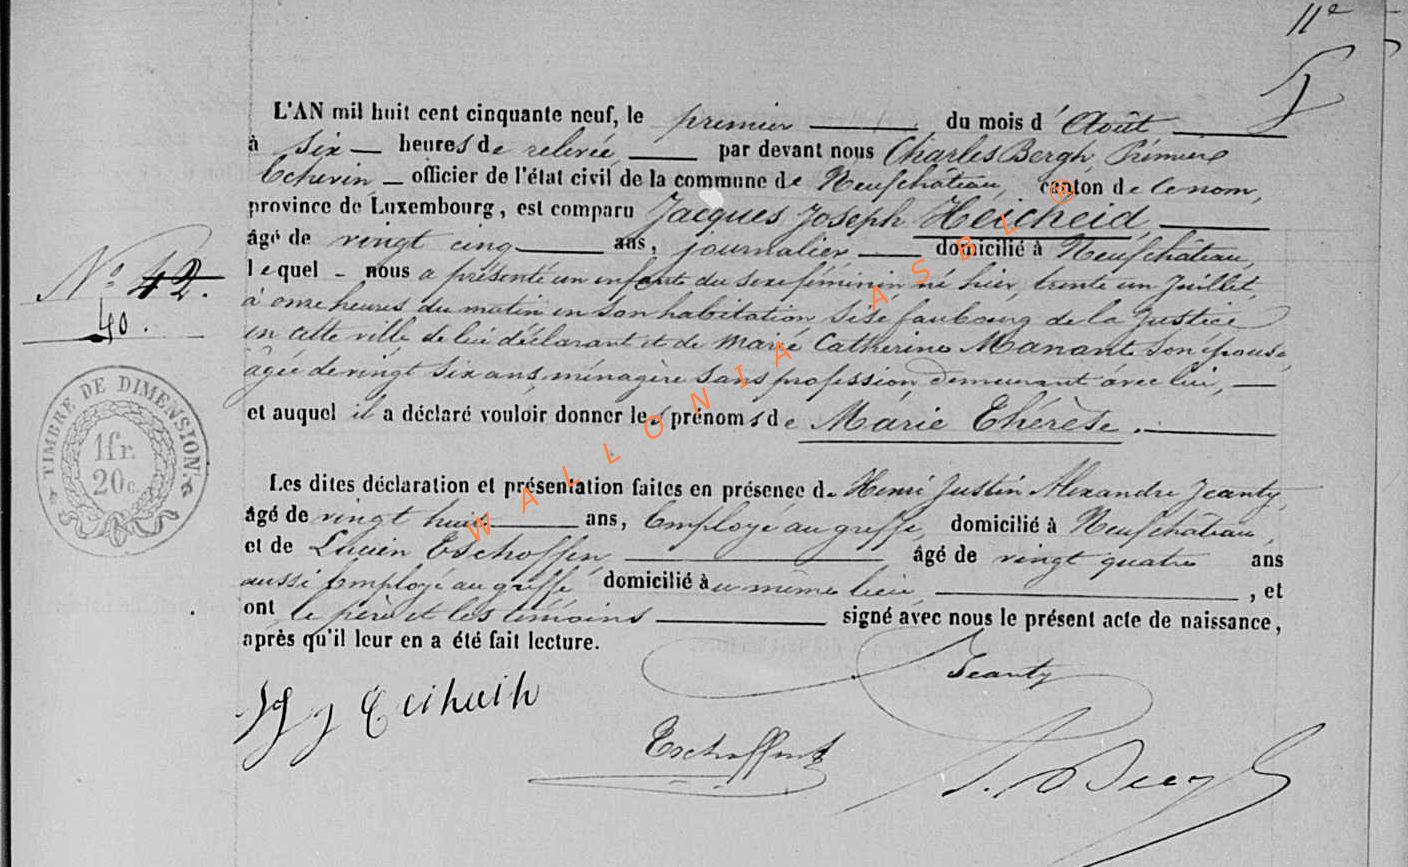 11e
L'AN mil huit cent cinquante neuf, le premier du mois d'Août
à six heures de relevée, par devant nous Charles Bergh Prémier
Echevin, officier de l'état civil de la commune de Neufchâteau, canton de ce nom,
province de Luxembourg, est comparu Jacques Joseph Heicheid,
âgé de vingt cinq ans, journalier domicilié à Neufchâteau,
lequel nous a présenté un enfant du sexe féminin né hier, trente un Juillet,
N° 42.
40.
à onze heures du matin en son habitation sise faubourg de la Justice
en cette ville de lui déclarant et de Marie Catherine Manant son épouse,
âgée de vingt six ans, ménagère sans profession demeurant avec lui,
et auquel il a déclaré vouloir donner les prénoms de Marie Thérèse.
TIMBRE DE DIMENSION.
1fr.
20c.
Les dites déclaration et présentation faites en présence de Henri Justin Alexandre Jeanty,
âgé de vingt huit ans, Employé au greffe, domicilié à Neufchâteau,
et de Lucien Eschoffen, âgé de vingt quatre ans
aussi Employé au greffe domicilié au même lieu, , et
ont le père et les témoins signé avec nous le présent acte de naissance,
après qu'il leur en a été fait lecture.
Jeanty
Eschoffen
WALLONIA ASBL ®